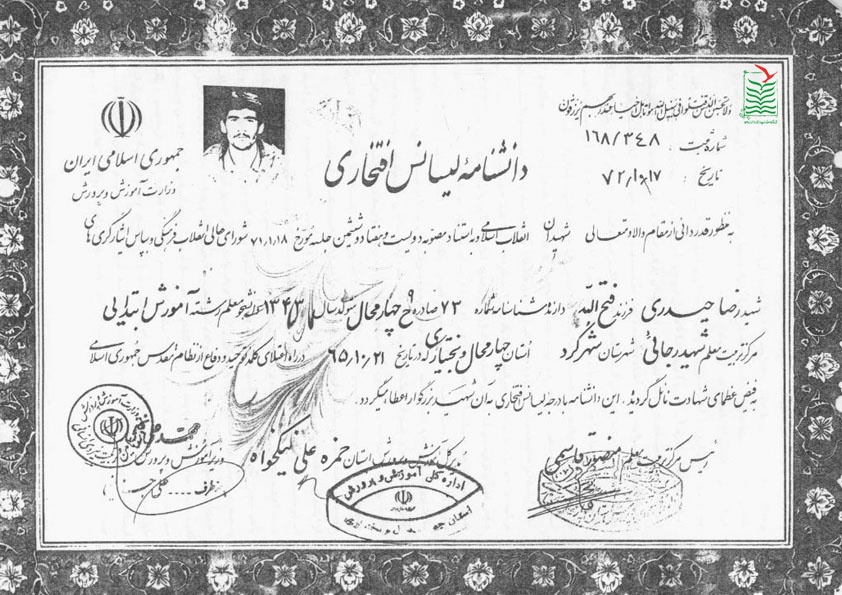 جمهوری اسلامی ایران
وزارت آموزش و پرورش
شماره ثبت: ۱۶۸/۳۴۸
تاریخ: ۷۲/۱۰/۱۷
دانشنامهٔ لیسانس افتخاری
به منظور قدردانی از مقام والا و متعالی شهیدان انقلاب اسلامی و به استناد مصوبه دویست و هفتاد و ششمین جلسه مورخ ۷۱/۱/۱۸ شورای عالی انقلاب فرهنگی و بپاس ایثارگری های
شهید رضا حیدری فرزند فتح الله دارنده شناسنامه شماره ۷۳ صادره چهارمحال متولد سال ۱۳۴۳ دانشجو معلم رشته آموزش ابتدایی
مرکز تربیت معلم شهید رجائی شهرستان شهرکرد استان چهارمحال و بختیاری که در تاریخ ۶۵/۱۰/۲۱ در راه اعتلای کلمه توحید و دفاع از نظام مقدس جمهوری اسلامی
به فیض عظمای شهادت نائل گردیده، این دانشنامه با درجه لیسانس افتخاری به آن شهید بزرگوار اعطا میگردد.
رئیس مرکز تربیت معلم منصور قاسمی
مدیر کل آموزش و پرورش استان حمزه علی نیکخواه
وزیر آموزش و پرورش
از طرف .... علی
اداره کل آموزش و پرورش
استان